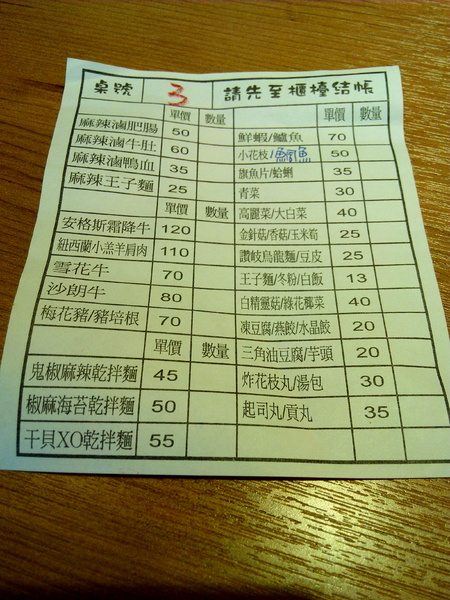 桌號 3 請先至櫃檯結帳
單價 數量
麻辣滷肥腸 50
麻辣滷牛肚 60
麻辣滷鴨血 35
麻辣王子麵 25
單價 數量
安格斯霜降牛 120
紐西蘭小羔羊肩肉 110
雪花牛 70
沙朗牛 80
梅花豬/豬培根 70
單價 數量
鬼椒麻辣乾拌麵 45
椒麻海苔乾拌麵 50
干貝XO乾拌麵 55
單價 數量
鮮蝦/鱸魚 70
小花枝/鯛魚 50
旗魚片/蛤蜊 35
青菜 30
高麗菜/大白菜 40
金針菇/香菇/玉米筍 25
讚岐烏龍麵/豆皮 25
王子麵/冬粉/白飯 13
白精靈菇/綠花椰菜 40
凍豆腐/燕餃/水晶餃 20
三角油豆腐/芋頭 20
炸花枝丸/湯包 30
起司丸/貢丸 35